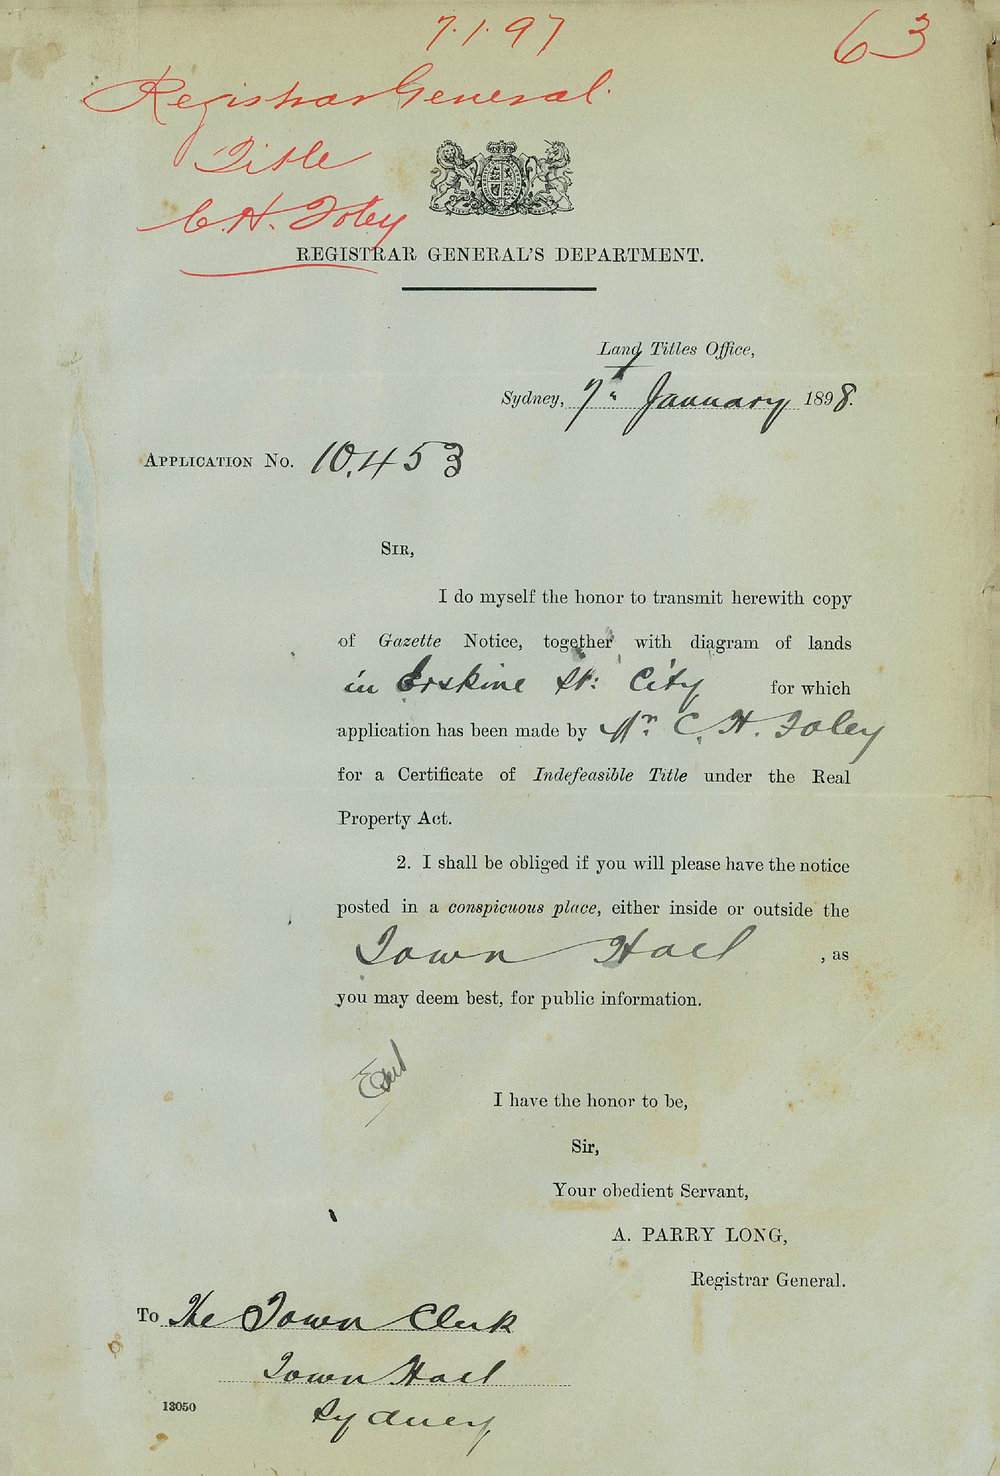 7.1.97
63
Registrar General.
Title
C. H. Foley
REGISTRAR GENERAL'S DEPARTMENT.
Land Titles Office,
Sydney, 7th January 1898.
APPLICATION NO. 10,453
SIR,
I do myself the honor to transmit herewith copy
of Gazette Notice, together with diagram of lands
in Erskine St: City for which
application has been made by Mr. C. H. Foley
for a Certificate of Indefeasible Title under the Real
Property Act.
2. I shall be obliged if you will please have the notice
posted in a conspicuous place, either inside or outside the
Town Hall , as
you may deem best, for public information.
I have the honor to be,
Sir,
Your obedient Servant,
A. PARRY LONG,
Registrar General.
To The Town Clerk
Town Hall
Sydney
13050